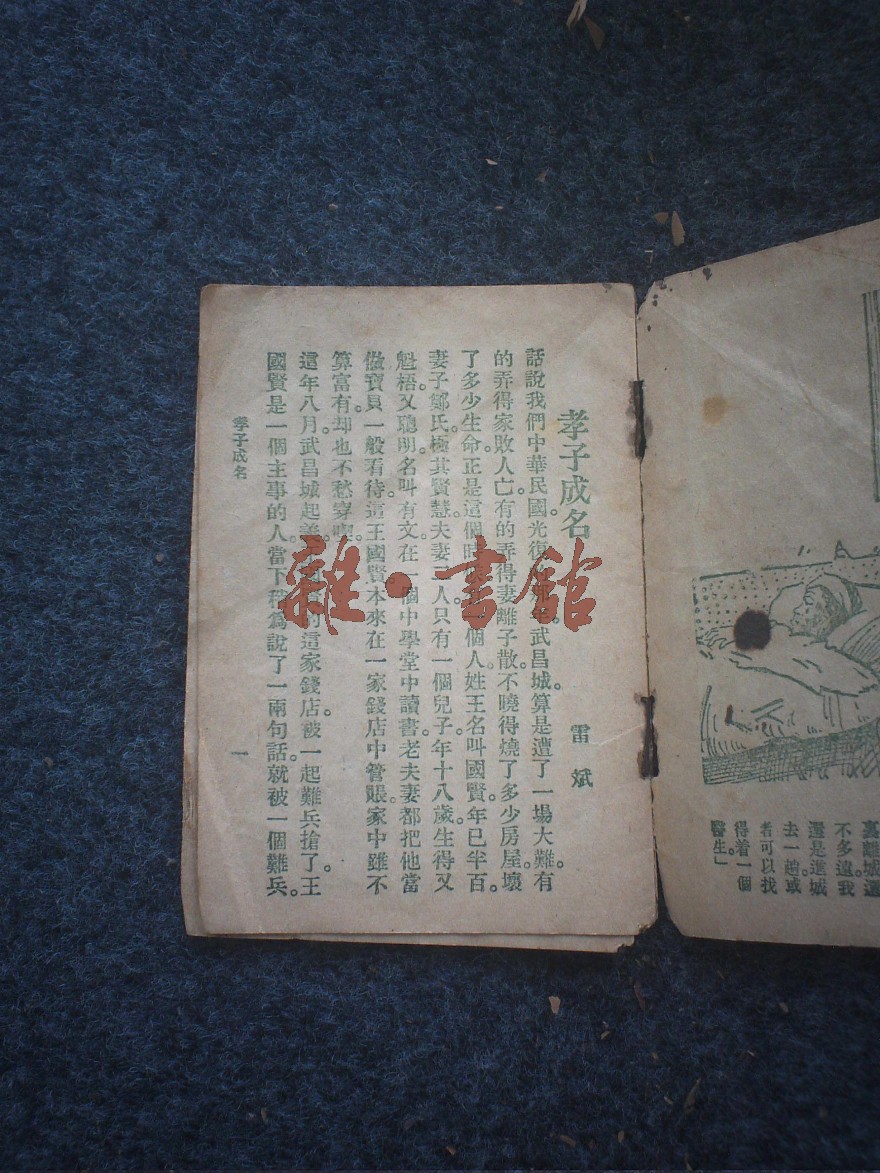 裏離城還
不多遠。我
還是進城
去一趟。或
者可以找
得着一個
醫生。」
孝子成名
雷斌
話說我們中華民國。光復 武昌城。算是遭了一場大難。有
的弄得家敗人亡。有的弄得妻離子散。不曉得燒了多少房屋。壞
了多少生命。正是這個時 個人。姓王名叫國賢。年已半百。
妻子鄭氏。極其賢慧。夫妻二人。只有一個兒子。年十八歲。生得又
魁梧。又聰明。名叫有文。在一個中學堂中讀書。老夫妻都把他當
做寶貝一般看待。這王國賢本來在一家錢店中管賬。家中雖不
算富有。却也不愁穿喫。
這年八月。武昌城起義。 的這家錢店。被一起難兵搶了。王
國賢是一個主事的人。當下稍爲說了一兩句話。就被一個難兵。
孝子成名
一
雜·書館